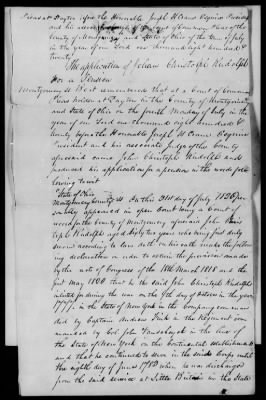 Pleas at Dayton before the Honorable Joseph H Crane Esquire President
and his associate Judges of the Court of Common Pleas of the
County of Montgomery and State of Ohio of the Term of July
in the year of our Lord one thousand eight hundred &
twenty
The application of Johann Christoph Rudolph
for a Pension
Montgomery SS Be it remembered that at a Court of Common
Pleas holden at Dayton in the County of Montgomery
and State of Ohio on the fourth Monday of July in the
year of our Lord one thousand eight hundred &
twenty before the Honorable Joseph H Crane Esquire
President and his associate Judges of the County
aforesaid came John Christoph Rudolph and
produced his application for a pension in the words fol
lowing to wit
State of Ohio
Montgomery County SS On this 31st day of July 1820 per
sonally appeared in open Court being a Court of
record for the County of Montgomery aforesaid John Chris
toph Rudolph aged sixty two years who being first duly
sworn according to law doth on his oath make the follow
ing declaration in order to obtain the provision made
by the acts of Congress of the 18th March 1818 and the
first May 1820 that he the said John Christoph Rudolph
inlisted for during the war on the 9th day of October in the year
1777 in the State of New York in the Company comman
ded by Captain Andrew Fink in the Regiment com
manded by Col John in the line of
the State of New York on the Continental establishment
and that he continued to serve in the said Corps until
the eighth day of June 1783 when he was discharged
from the said service at Little Britain in the State